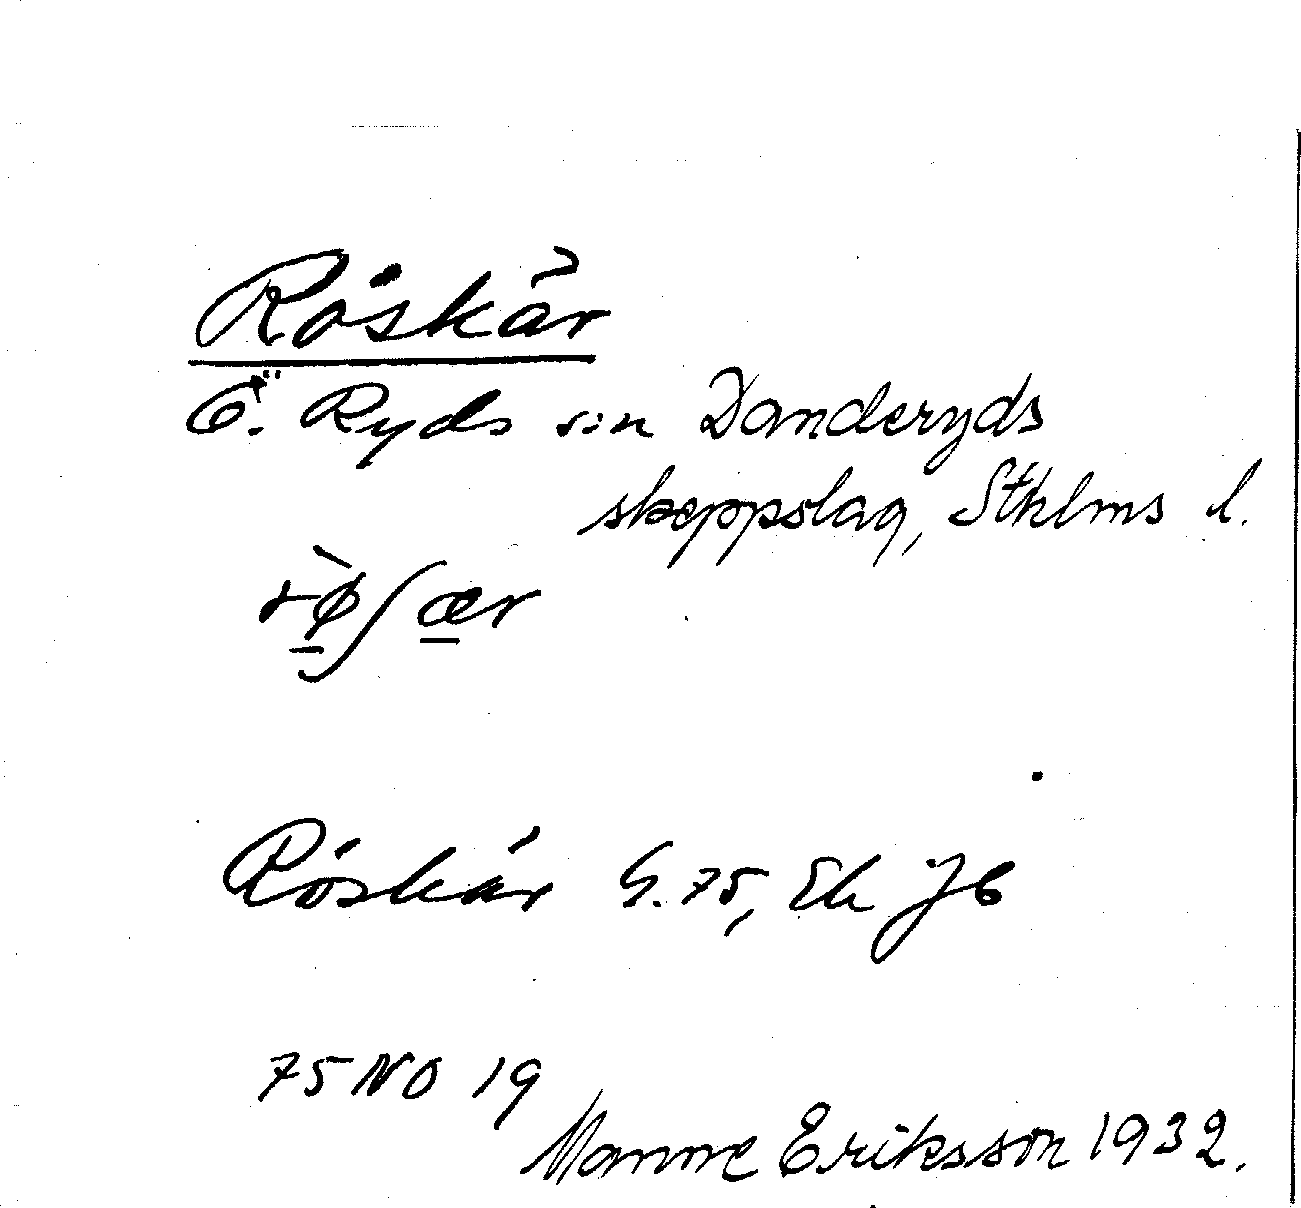 Röskär
Ö. Ryds sn Danderyds
skeppslag, Sthlms l.
rø̀ʃær
Röskär G. 75, Ek JB
75 NO 19
Manne Eriksson 1932.